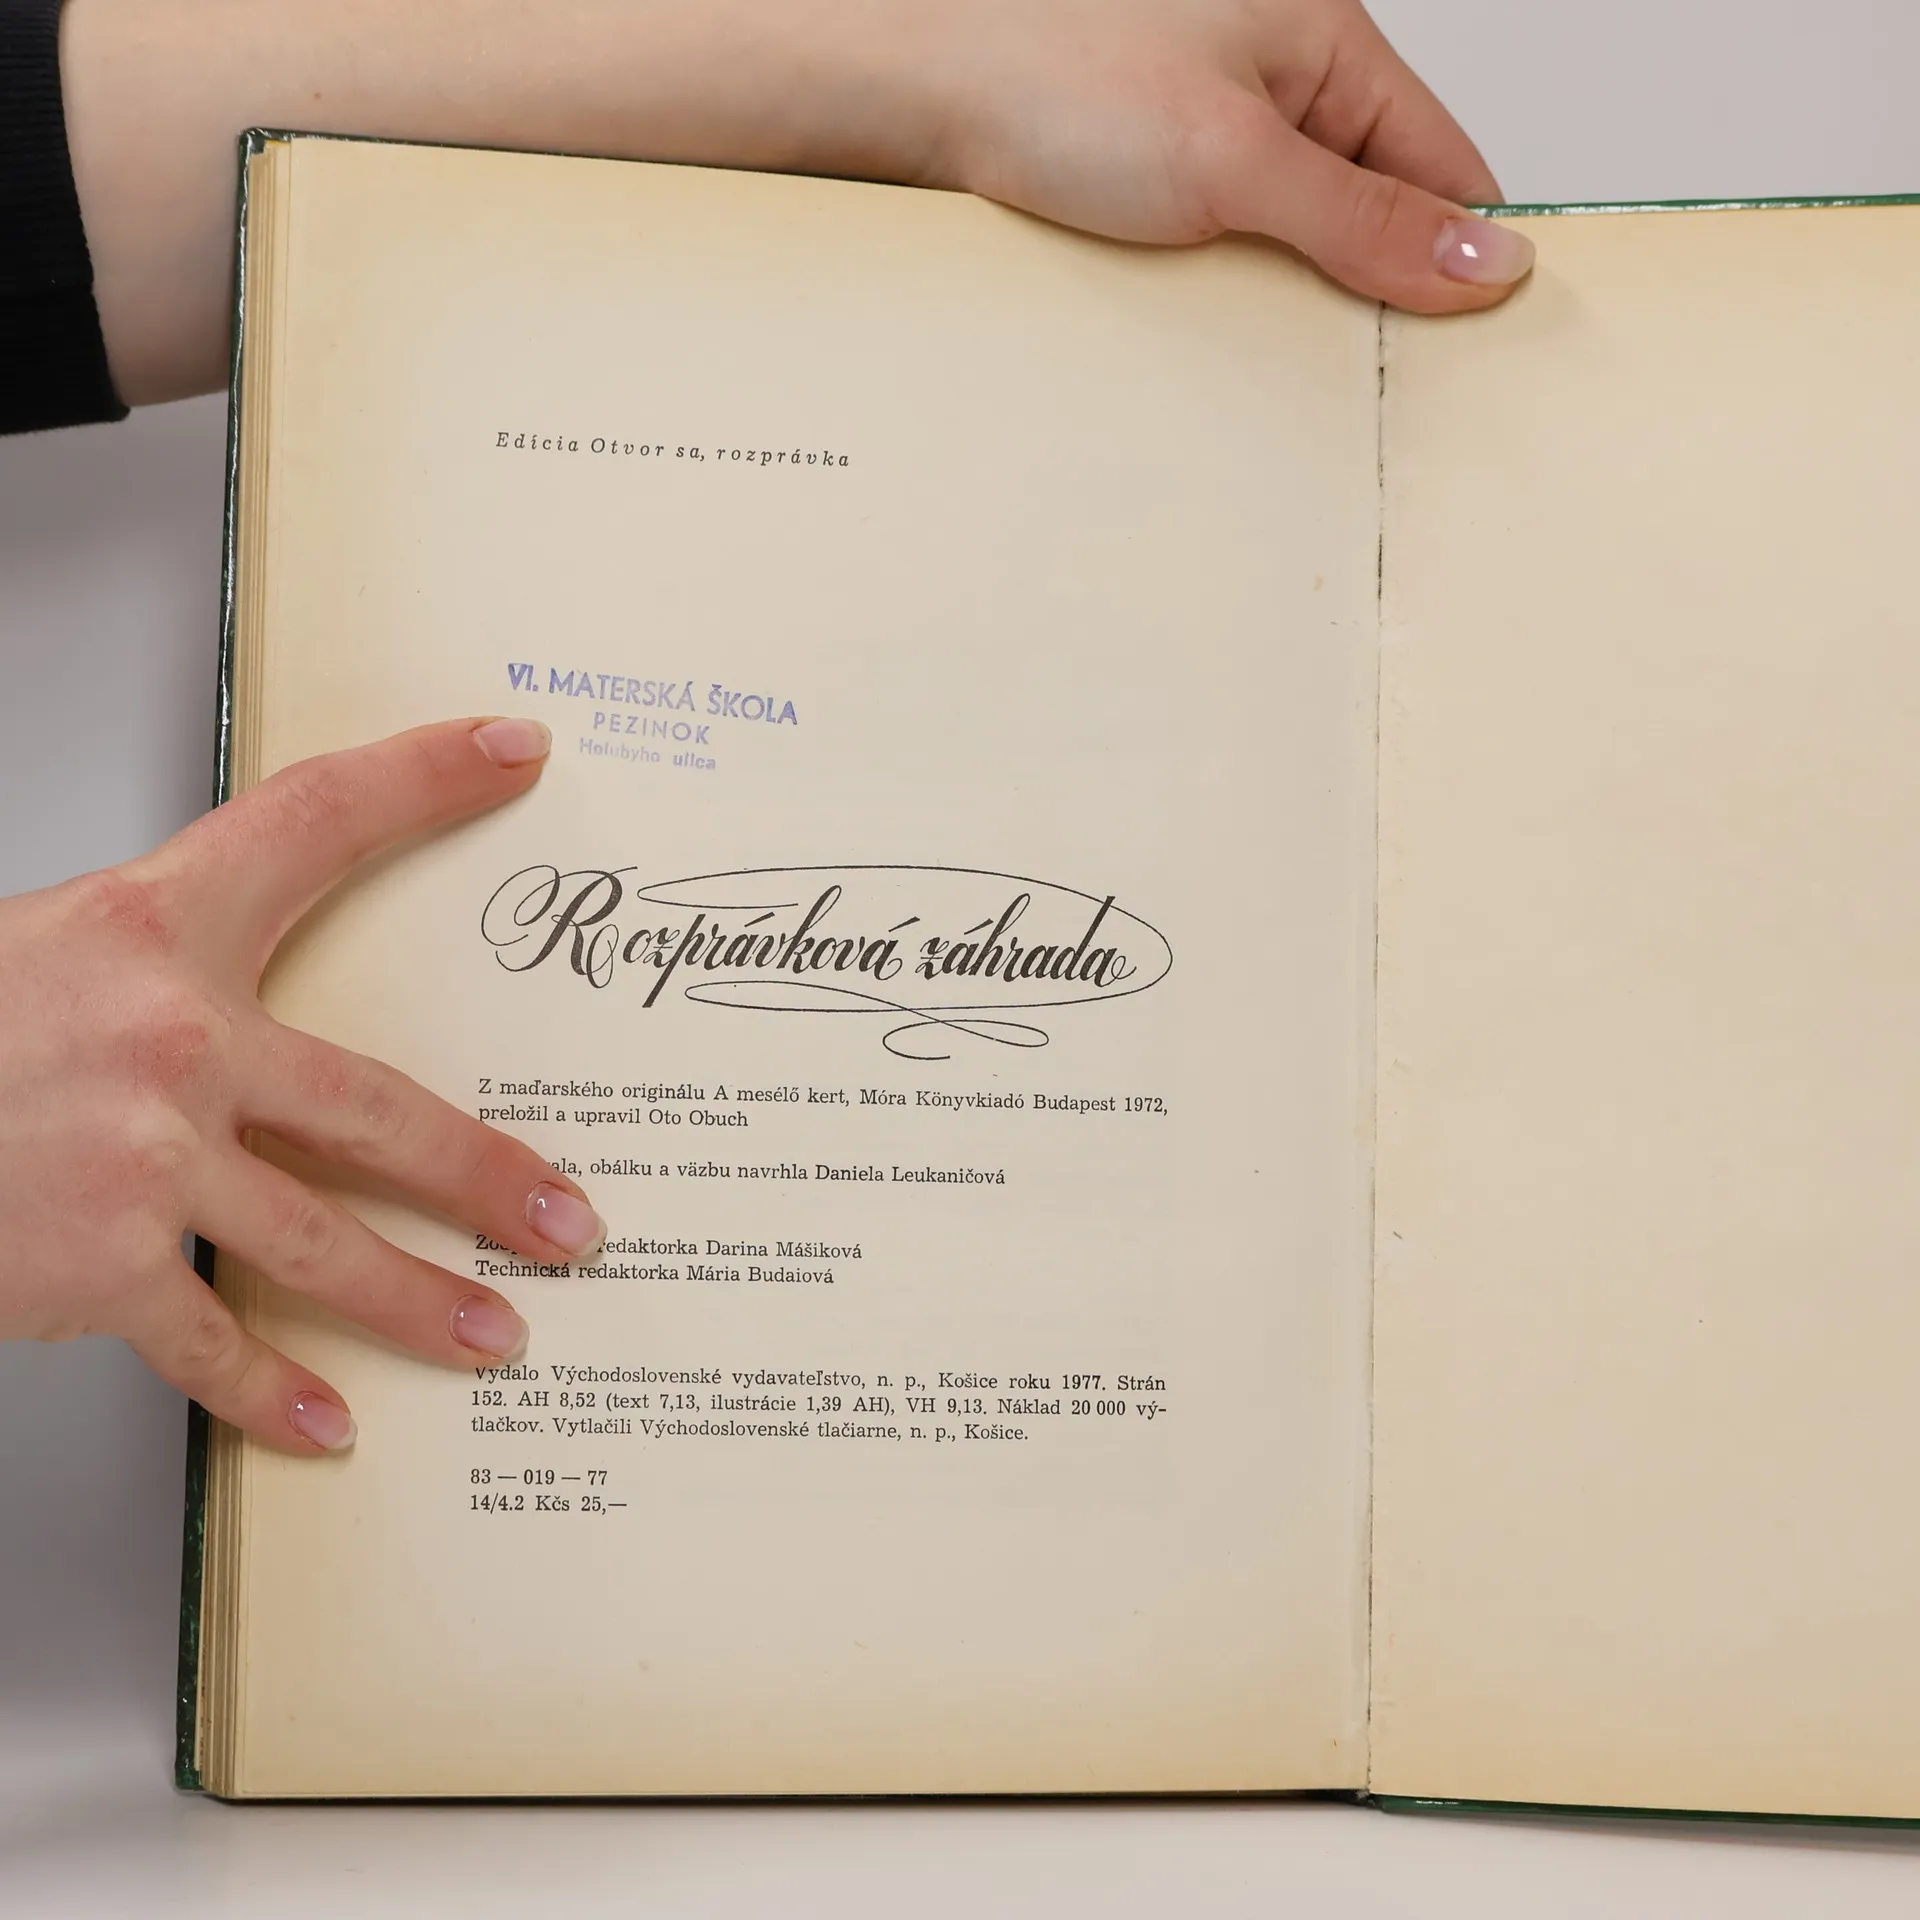 Edícia Otvor sa, rozprávka
VI. MATERSKÁ ŠKOLA
PEZINOK
Holubyho ulica
Rozprávková záhrada
Z maďarského originálu A mesélő kert, Móra Könyvkiadó Budapest 1972,
preložil a upravil Oto Obuch
obálku a väzbu navrhla Daniela Leukaničová
redaktorka Darina Mášiková
Technická redaktorka Mária Budaiová
Vydalo Východoslovenské vydavateľstvo, n. p., Košice roku 1977. Strán
152. AH 8,52 (text 7,13, ilustrácie 1,39 AH), VH 9,13. Náklad 20 000 vý-
tlačkov. Vytlačili Východoslovenské tlačiarne, n. p., Košice.
83 — 019 — 77
14/4.2 Kčs 25,—